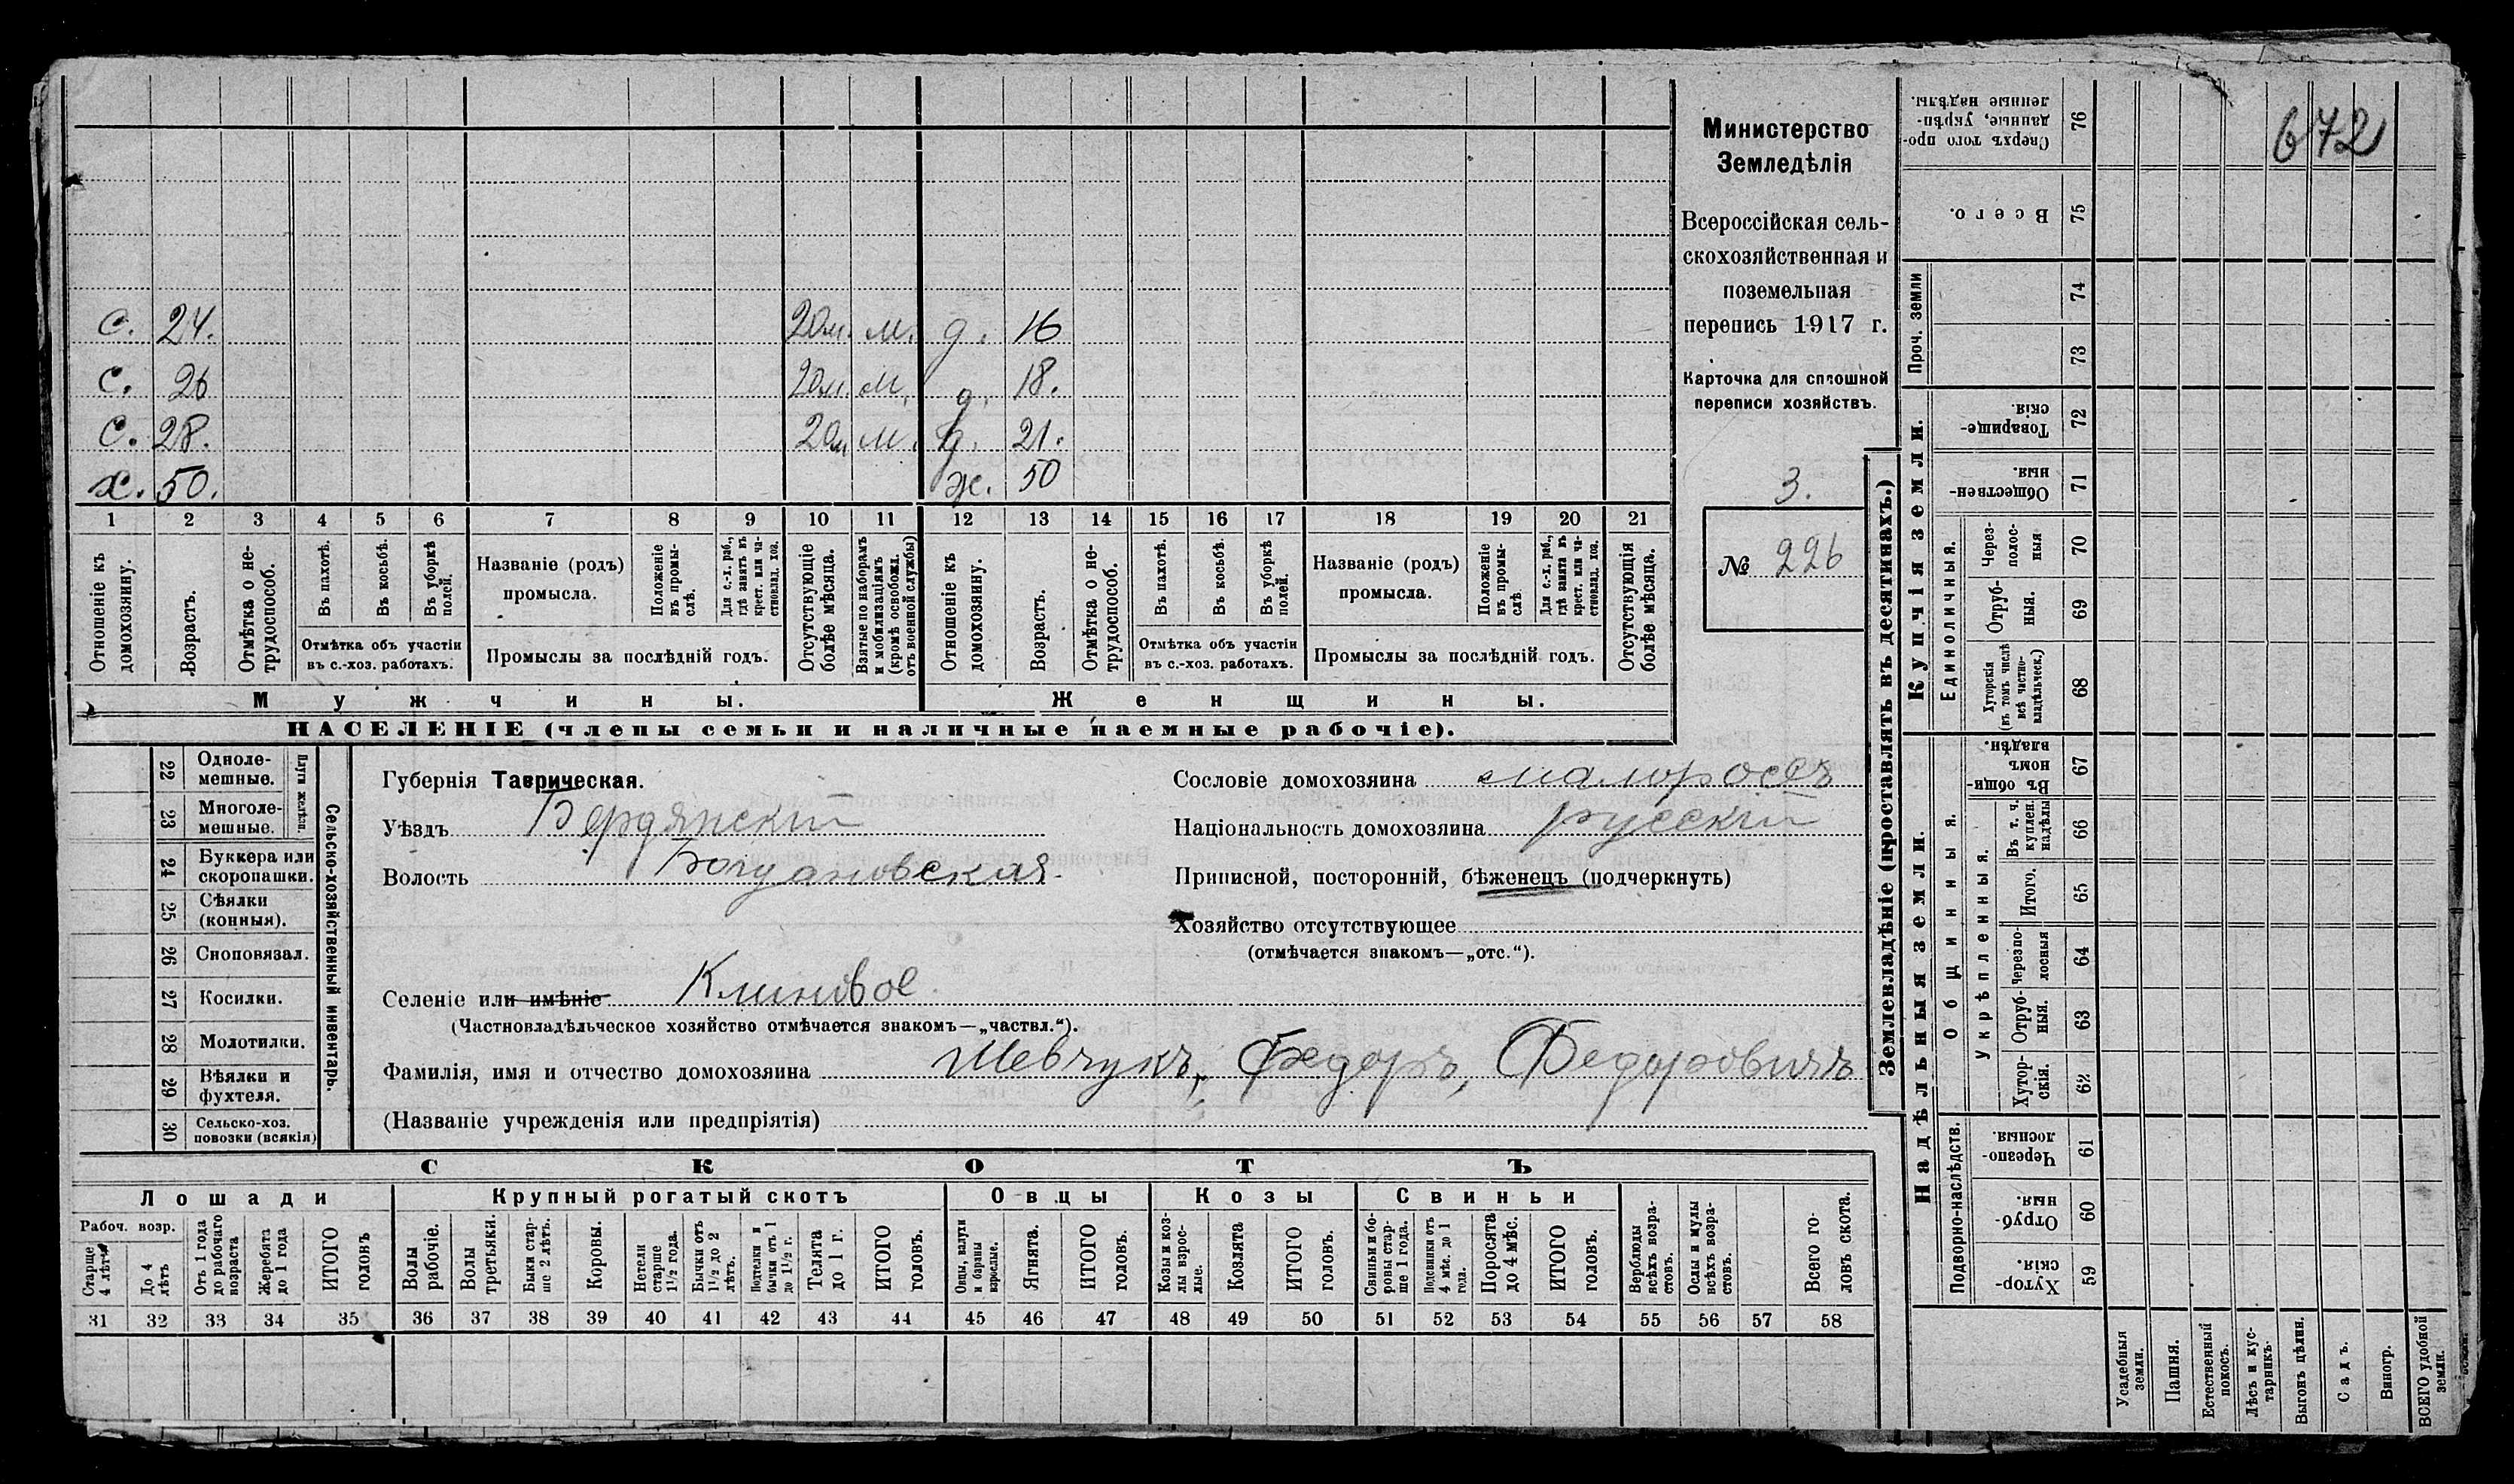 672
Министерство
Земледѣлія
Всероссійская сель-
скохозяйственная и
поземельная
перепись 1917 г.
Карточка для сплошной
переписи хозяйствъ.
3.
№ 226
с. 24. 20м. м. д. 16
с. 26 20м. м. д. 18.
с. 28. 20м м. д. 21.
х. 50. ж. 50
1 2 3 4 5 6 7 8 9 10 11 12 13 14 15 16 17 18 19 20 21
Отношеніе къ домохозяину.
Возрастъ.
Отмѣтка о не-трудоспособ.
Въ пахотѣ.
Въ косьбѣ.
Въ уборкѣ полей.
Отмѣтка объ участіи
въ с.-хоз. работахъ.
Названіе (родъ)
промысла.
Положеніе въ промы-слѣ.
Для с.-х. раб., гдѣ занятъ въ крест. или ча-стновлад. хоз.
Промыслы за послѣдній годъ.
Отсутствующіе болѣе мѣсяца.
Взятые по наборамъ и мобилизаціямъ (кромѣ освобожд. отъ военной службы)
Отношеніе къ домохозяину.
Возрастъ.
Отмѣтка о не-трудоспособ.
Въ пахотѣ.
Въ косьбѣ.
Въ уборкѣ полей.
Отмѣтка объ участіи
въ с.-хоз. работахъ.
Названіе (родъ)
промысла.
Положеніе въ промы-слѣ.
Для с.-х. раб., гдѣ занята въ крест. или ча-стновлад. хоз.
Промыслы за послѣдній годъ.
Отсутствующія болѣе мѣсяца.
Мужчины.
Женщины.
НАСЕЛЕНІЕ (члены семьи и наличные наемные рабочіе).
22 Однолемешные.
23 Многолемешные.
Плуги желѣзн.
24 Буккера или скоропашки.
25 Сѣялки (конныя).
26 Сноповязал.
27 Косилки.
28 Молотилки.
29 Вѣялки и фухтеля.
30 Сельско-хоз. повозки (всякія)
Сельско-хозяйственный инвентарь.
Губернія Таврическая.
Уѣздъ Бердянскій
Волость Богдановская.
Селеніе или имѣніе Клиновое.
(Частновладѣльческое хозяйство отмѣчается знакомъ—„частвл.“).
Фамилія, имя и отчество домохозяина Шевчукъ, Федоръ, Федоровичъ
(Названіе учрежденія или предпріятія)
Сословіе домохозяина малороссъ
Національность домохозяина русскій
Приписной, посторонній, бѣженецъ (подчеркнуть)
Хозяйство отсутствующее
(отмѣчается знакомъ—„отс.“).
СКОТЪ
Лошади
Крупный рогатый скотъ
Овцы
Козы
Свиньи
Рабоч. возр.
Старше 4 лѣтъ
До 4 лѣтъ
Отъ 1 года до рабочаго возраста
Жеребята до 1 года
ИТОГО головъ
Волы рабочіе.
Волы третьяки.
Быки стар-ше 2 лѣтъ.
Коровы.
Нетели старше 1½ года.
Бычки отъ 1½ до 2 лѣтъ.
Подтелки и бычки отъ 1 до 1½ г.
Телята до 1 г.
ИТОГО головъ.
Овцы, валухи и бараны взрослые.
Ягнята.
ИТОГО головъ.
Козы и коз-лы взрос-лые.
Козлята
ИТОГО головъ.
Свиньи и бо-ровы стар-ше 1 года.
Подсвинки отъ 4 мѣс. до 1 года.
Поросята до 4 мѣс.
ИТОГО головъ.
Верблюды всѣхъ возра-стовъ.
Ослы и мулы всѣхъ возра-стовъ.
Всего го-ловъ скота.
31 32 33 34 35 36 37 38 39 40 41 42 43 44 45 46 47 48 49 50 51 52 53 54 55 56 57 58
Землевладѣніе (проставлять въ десятинахъ.)
Сверхъ того про-данные, укрѣп-ленные надѣлы. 76
Всего. 75
Проч. земли 74
73
Купчія земли.
Товарище-скія. 72
Обществен-ныя. 71
Единоличныя.
Через-полос-ныя 70
Отруб-ныя. 69
Хуторскія (въ томъ числѣ всѣ частно-владѣльческ.) 68
Надѣльныя земли.
Общинныя.
Въ общинномъ владѣн. 67
Укрѣпленныя.
Въ т. ч. куплен. надѣлы 66
Итого. 65
Черезпо-лосныя 64
Отруб-ныя. 63
Хутор-скія. 62
Подворно-наслѣдств.
Черезпо-лосныя. 61
Отруб-ныя. 60
Хутор-скія. 59
Усадебныя земли.
Пашня.
Естественный покосъ.
Лѣсъ и кус-тарникъ.
Выгонъ цѣлин.
Садъ.
Виногр.
ВСЕГО удобной земли.